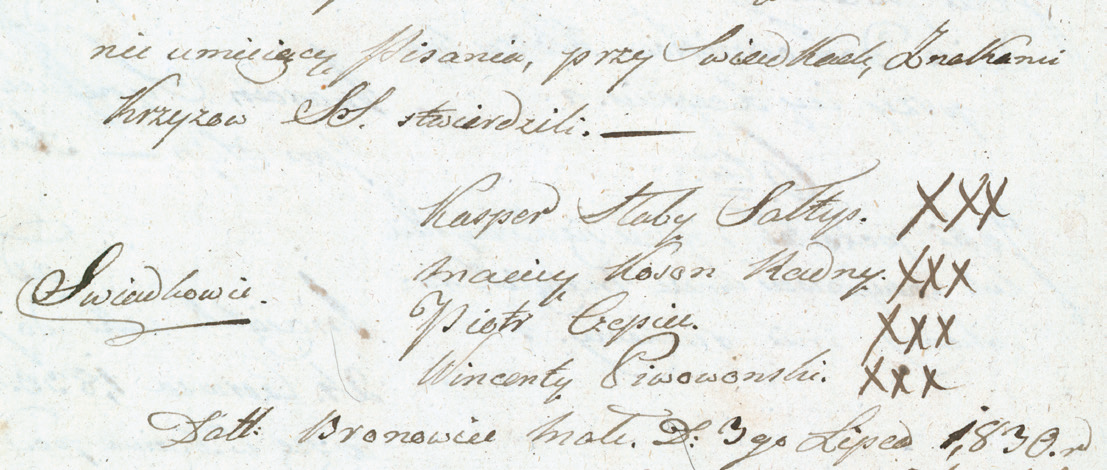 nie umieiący Pisania, przy Swiadkach, Znakami
Krzyzow SS. stwierdzili.—
Kasper Słaby Sołtys. XXX
Maciey Koson Radny. XXX
Swiadkowie.
Piotr Czepiec. XXX
Wincenty Piwowonski. XXX
Datt: Bronowice Małe. D: 3go Lipca 1830.r